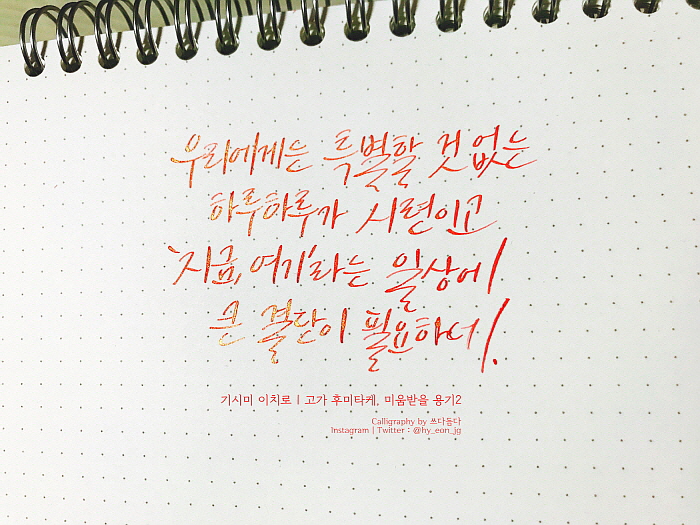 우리에게는 특별할 것 없는
하루하루가 시련이고
'지금, 여기'라는 일상에
큰 결단이 필요하네.
기시미 이치로 | 고가 후미타케, 미움받을 용기2
Calligraphy by 쓰다듬다
Instagram | Twitter : @hy_eon_jg